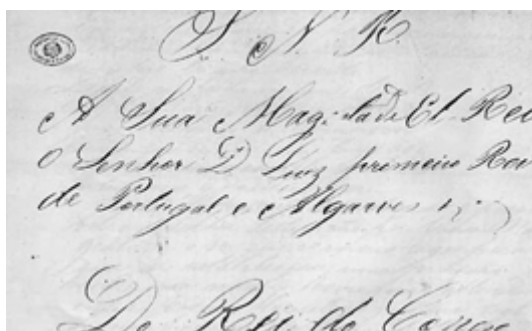 S. N. R.
A Sua Mag.stade El Rei
O Senhor D. Luiz primeiro Rei
de Portugal e Algarves
Do Rei do Congo